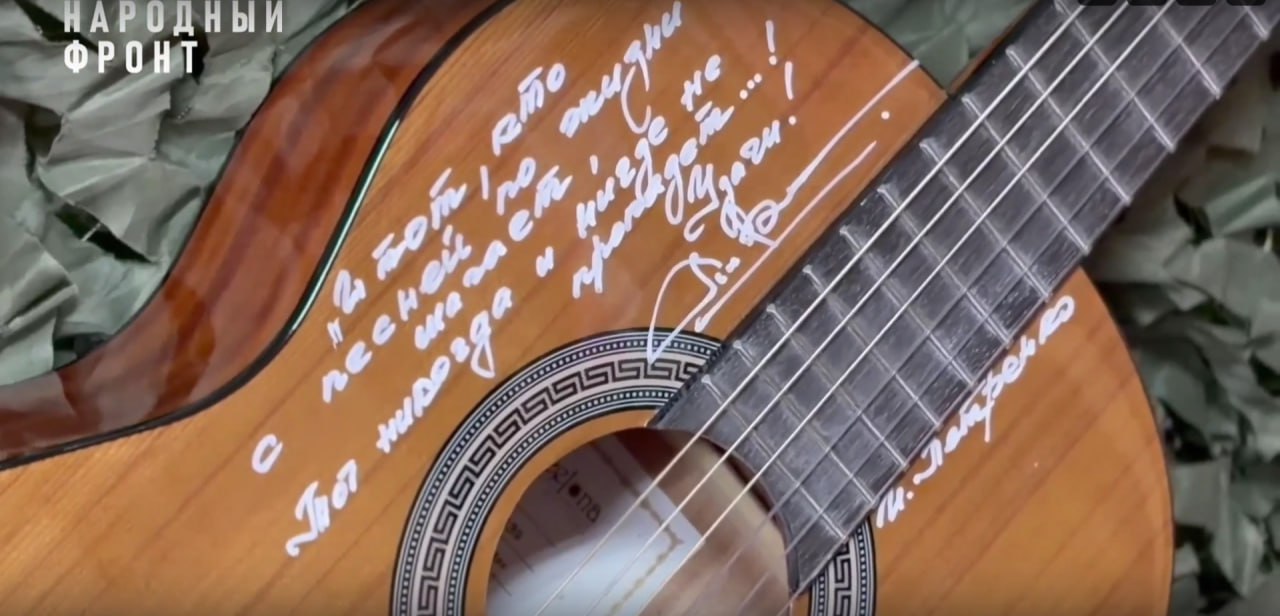 НАРОДНЫЙ
ФРОНТ
„И тот, кто
с песней по жизни
шагает,
Тот никогда и нигде не
пропадёт...!
Удачи!
И. Петренко